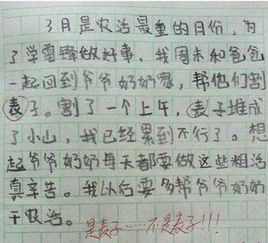 3月是农活最重的月份，为
了学雷锋做好事，我周末和爸爸
一起回到爷爷奶奶家，帮他们割
表子。割了一个上午，表子堆成
了小山，我已经累到不行了。想
起爷爷奶奶每天都要做这些粗活
真辛苦。我以后要多帮爷爷奶奶
干农活。
是麦子…不是表子!!!